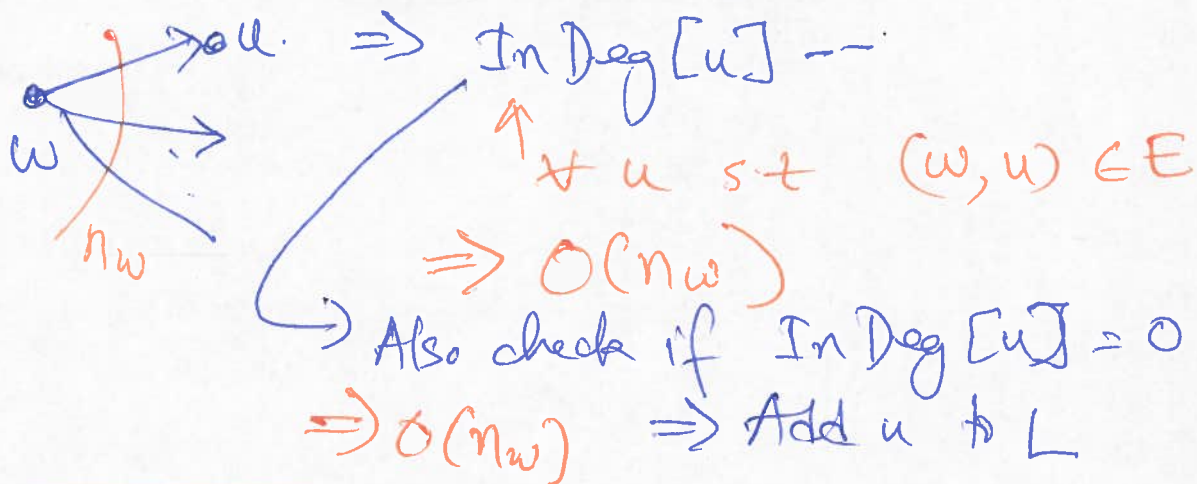 u. ⇒ InDeg[u] --
w
∀ u s.t (w, u) ∈ E
n_w
⇒ O(n_w)
→ Also check if InDeg[u] = 0
⇒ O(n_w) ⇒ Add u to L